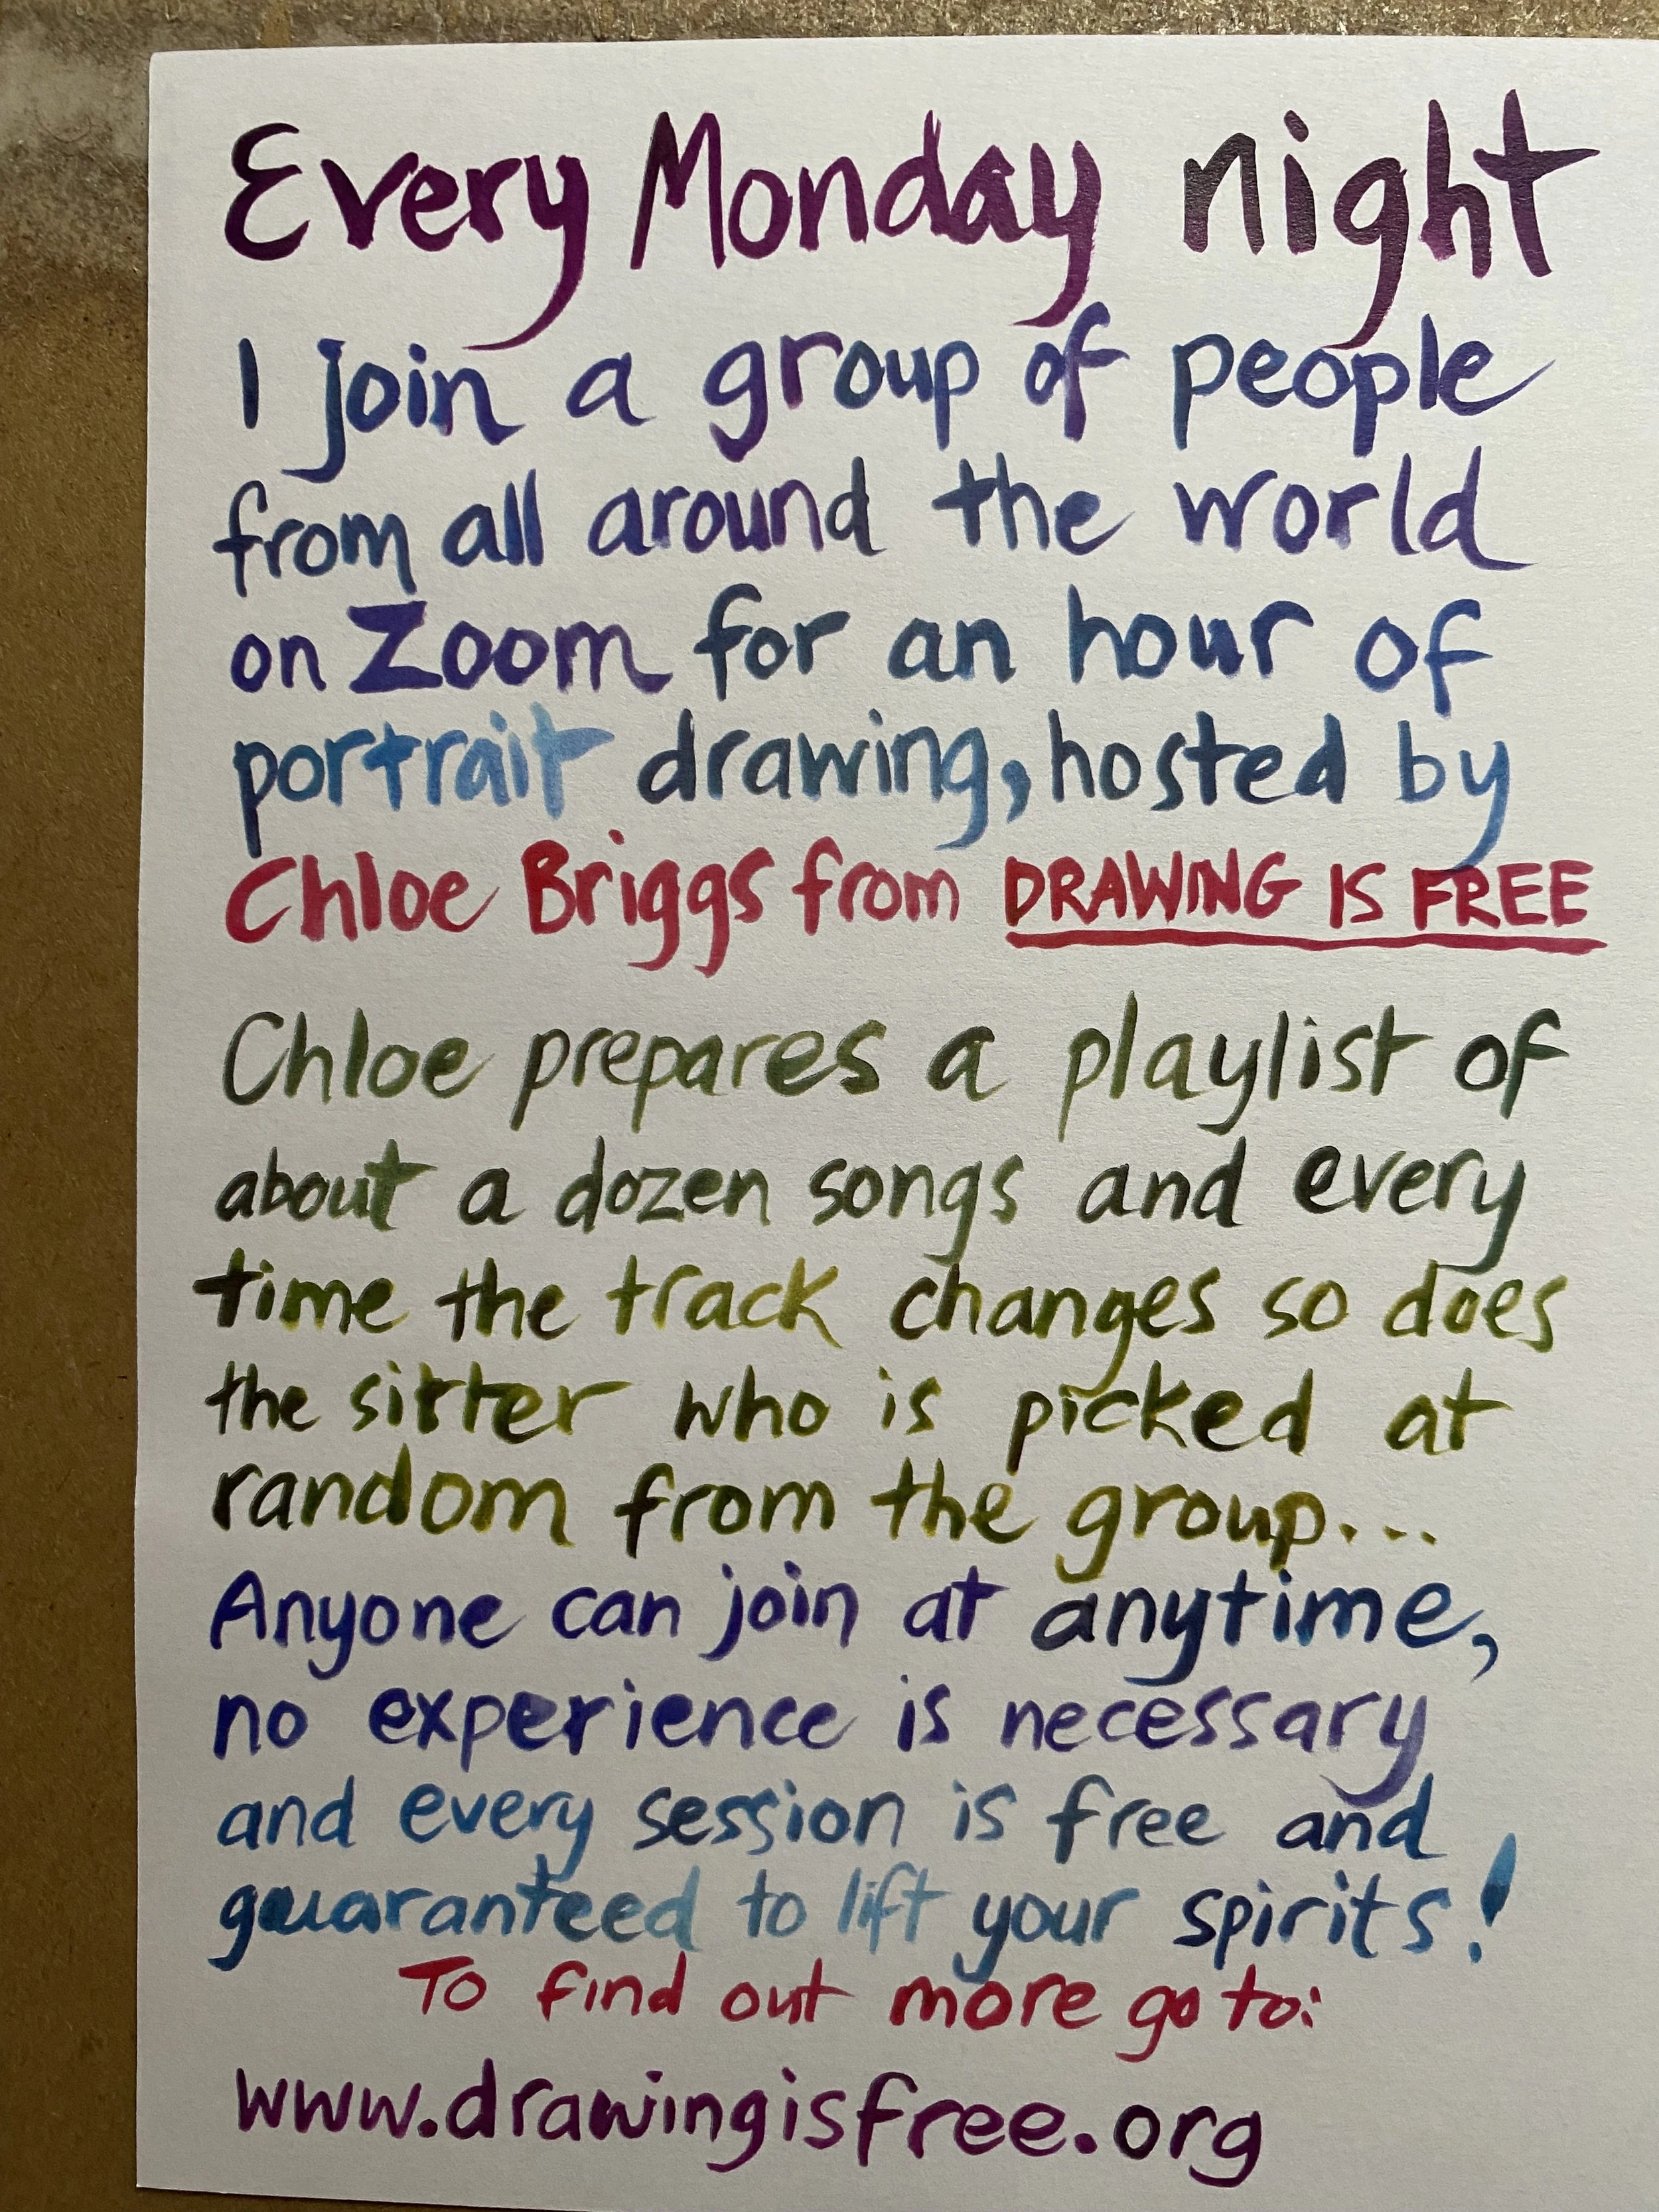 Every Monday night
I join a group of people
from all around the world
on Zoom for an hour of
portrait drawing, hosted by
Chloe Briggs from DRAWING IS FREE
Chloe prepares a playlist of
about a dozen songs and every
time the track changes so does
the sitter who is picked at
random from the group...
Anyone can join at anytime,
no experience is necessary
and every session is free and
guaranteed to lift your spirits!
To find out more go to:
www.drawingisfree.org